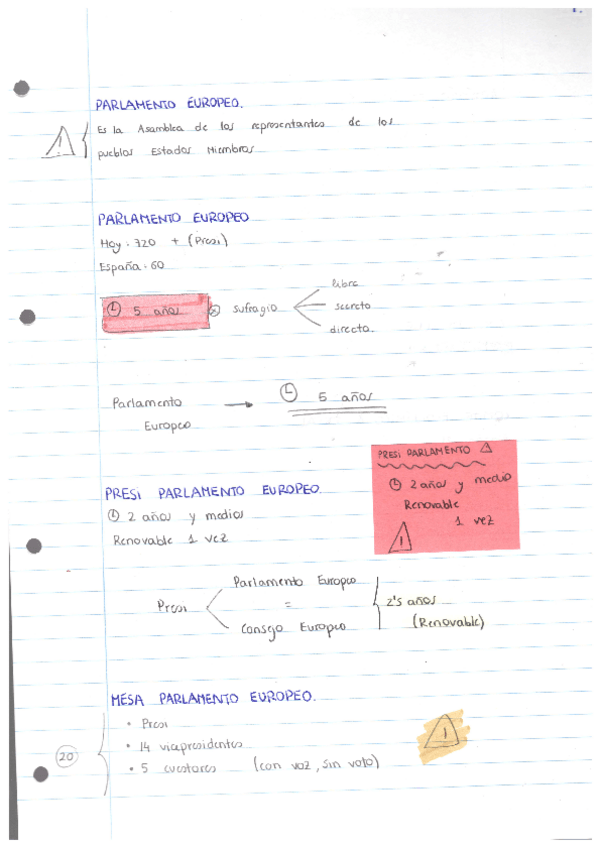 PARLAMENTO EUROPEO.
Es la Asamblea de los representantes de los
pueblos Estados Miembros
PARLAMENTO EUROPEO
Hoy: 720 + (Presi)
España: 60
5 años
sufragio
libre
secreto
directo
Parlamento
Europeo
5 años
PRESI PARLAMENTO
2 años y medio
Renovable
1 vez
PRESI PARLAMENTO EUROPEO
2 años y medios
Renovable 1 vez
Presi
Parlamento Europeo
=
Consejo Europeo
2'5 años
(Renovable)
MESA PARLAMENTO EUROPEO.
• Presi
• 14 vicepresidentes
• 5 cuestores (con voz, sin voto)
20